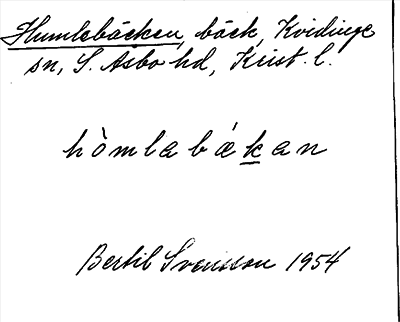 Humlebäcken, bäck, Kvidinge
sn, S. Åsbo hd, Krist. l.
hòmlabákan
Bertil Svensson 1954